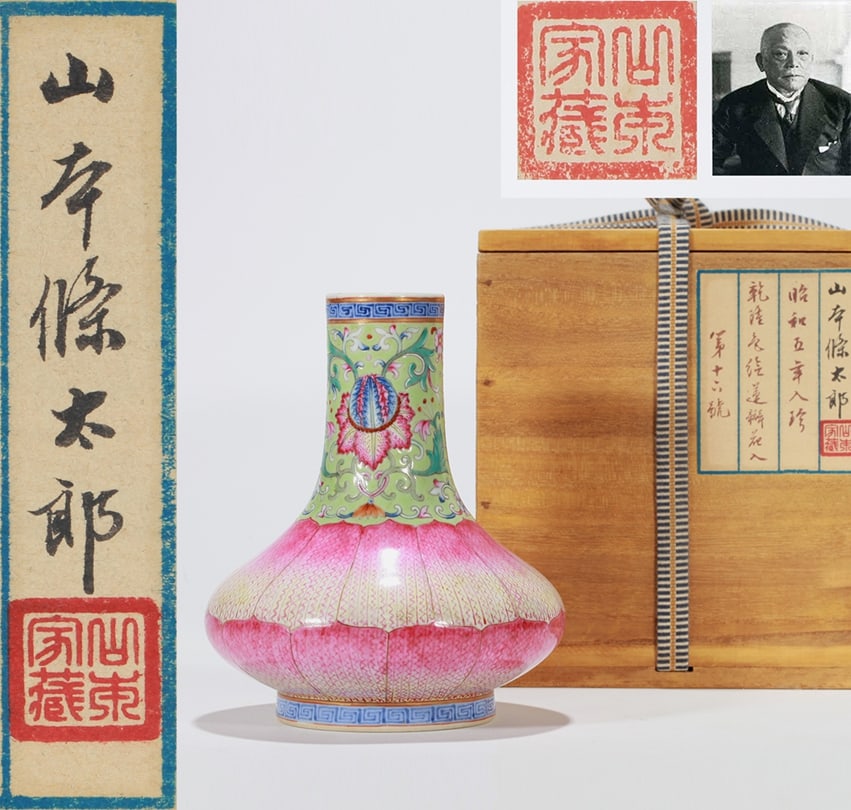 山本條太郎
家藏
家藏
山本條太郎
昭和五年入珍
乾隆色絵蓮瓣花入
第十六號
家藏